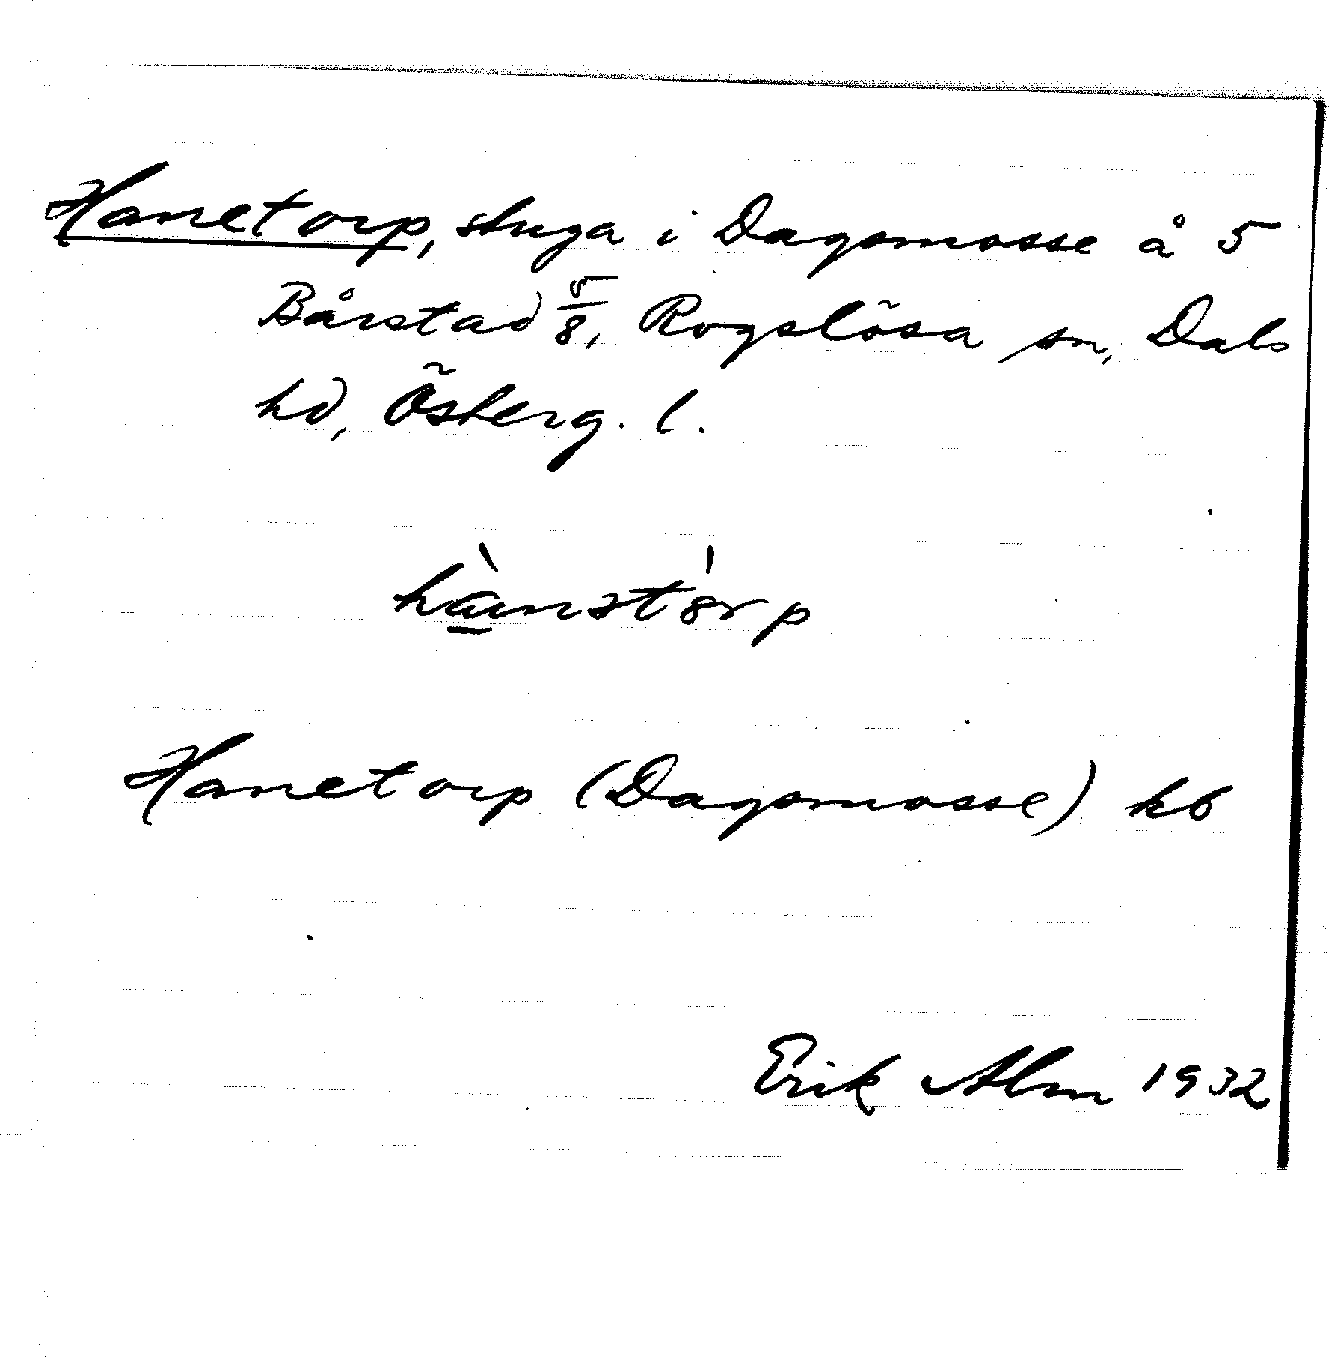 Hanetorp, stuga i Dagsmosse å 5
Bårstad 5/8, Rogslösa sn, Dals
hd, Österg. l.
Hanetorp (Dagsmosse) kb
Erik Alm 1932